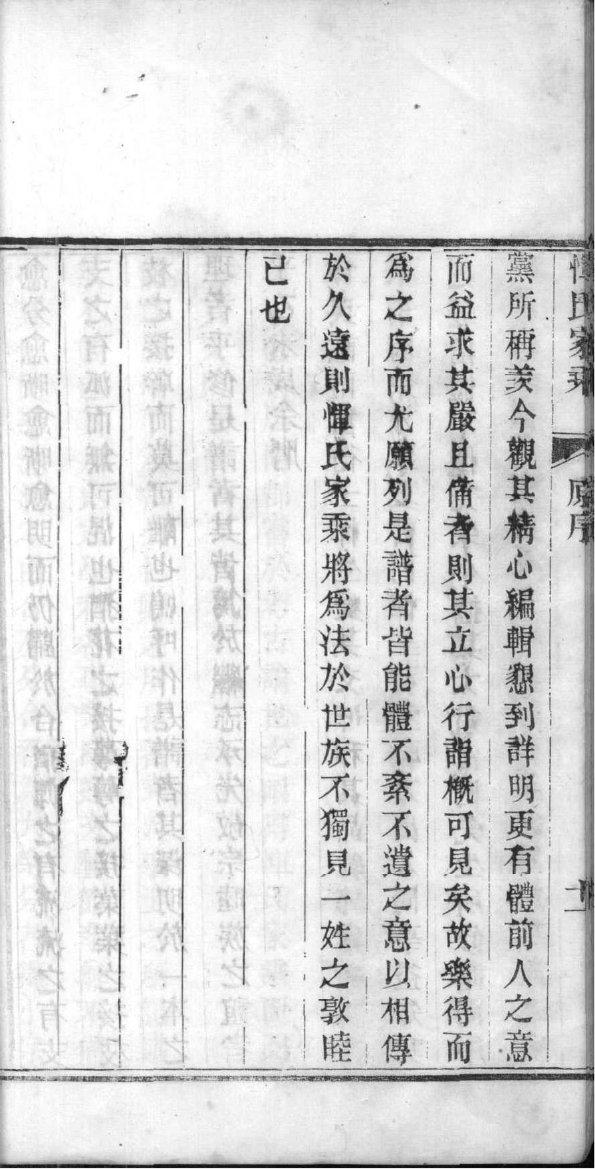 惲氏家乘
原序
十一
黨所稱羡今觀其精心編輯懇到詳明更有體前人之意
而益求其嚴且備者則其立心行誼概可見矣故樂得而
爲之序而尤願列是譜者皆能體不紊不遺之意以相傳
於久遠則惲氏家乘將爲法於世族不獨見一姓之敦睦
已也